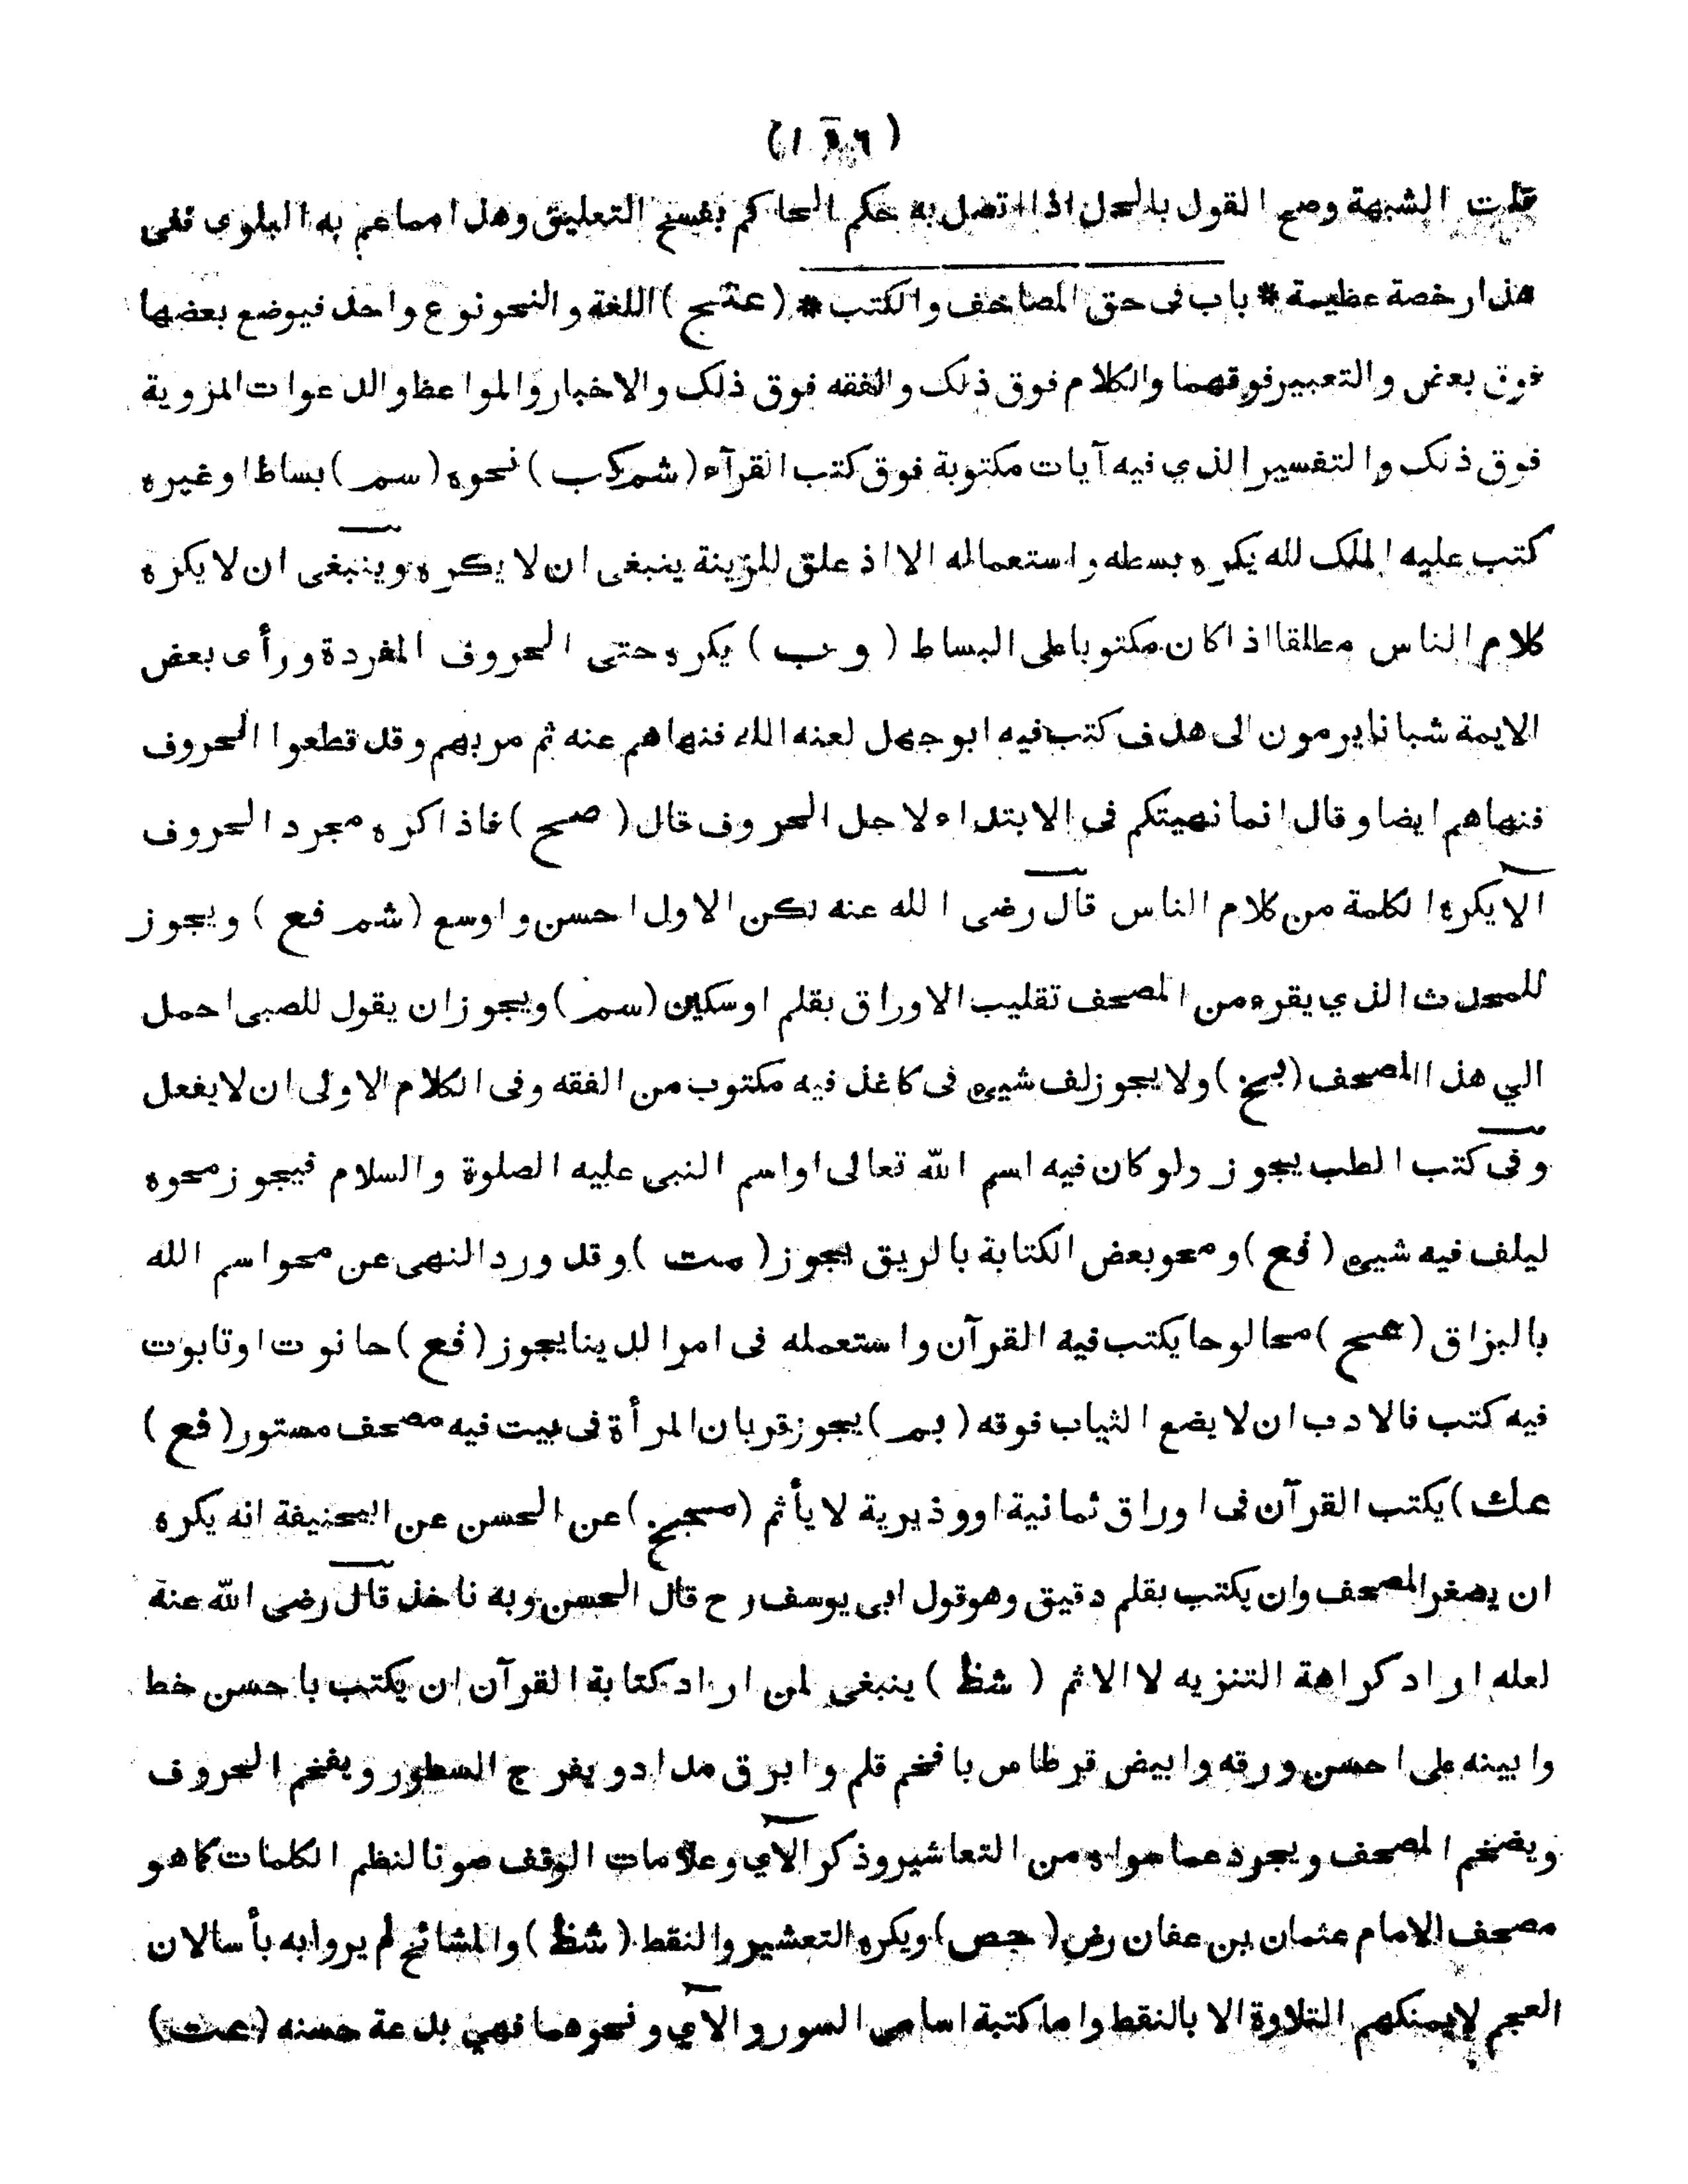 (١٥٦)
قلت الشبهة وصح القول بالحل اذا اتصل به حكم الحاكم بفسخ التعليق وهذا مما عم به البلوى ففى
هذا رخصة عظيمة * باب فى حق المصاحف والكتب * (عتج) اللغة والنحو نوع واحد فيوضع بعضها
فوق بعض والتعبير فوقهما والكلام فوق ذلك والفقه فوق ذلك والاخبار والمواعظ والدعوات المروية
فوق ذلك والتفسير الذي فيه آيات مكتوبة فوق كتب القرآء (شم كب) نحوه (سم) بساط او غيره
كتب عليه الملك لله يكره بسطه واستعماله الا اذ علق للزينة ينبغى ان لا يكره وينبغى ان لا يكره
كلام الناس مطلقا اذا كان مكتوبا على البساط (وب) يكره حتى الحروف المفردة ورأى بعض
الايمة شبانا يرمون الى هدف كتب فيه ابو جهل لعنه الله فنهاهم عنه ثم مر بهم وقد قطعوا الحروف
فنهاهم ايضا وقال انما نهيتكم فى الابتداء لاجل الحروف قال (صح) فاذا كره مجرد الحروف
الا يكره الكلمة من كلام الناس قال رضى الله عنه لكن الاول احسن واوسع (شم فع) ويجوز
للمحدث الذي يقرء من المصحف تقليب الاوراق بقلم او سكين (سم) ويجوز ان يقول للصبى احمل
الي هذا المصحف (بخ) ولا يجوز لف شيىء فى كاغذ فيه مكتوب من الفقه وفى الكلام الاولى ان لا يفعل
وفى كتب الطب يجوز ولو كان فيه اسم الله تعالى او اسم النبى عليه الصلوة والسلام فيجوز محوه
ليلف فيه شيىء (فع) ومحو بعض الكتابة بالريق يجوز (مت) وقد ورد النهى عن محو اسم الله
بالبزاق (صح) محا لوحا يكتب فيه القرآن واستعمله فى امر الدينا يجوز (فع) حانوت او تابوت
فيه كتب فالادب ان لا يضع الثياب فوقه (بم) يجوز قربان المرأة فى بيت فيه مصحف مستور (فع)
عك) يكتب القرآن فى اوراق ثمانية او وذيرية لا يأثم () عن الحسن عن ابحنيفة انه يكره
ان يصغر المصحف وان يكتب بقلم دقيق وهو قول ابى يوسف رح قال الحسن وبه ناخذ قال رضى الله عنه
لعله اراد كراهة التنزيه لا الاثم (شظ) ينبغى لمن اراد كتابة القرآن ان يكتب باحسن خط
وابينه على احسن ورقه وابيض قرطاس بافخم قلم وابرق مداد ويفرج السطور ويفخم الحروف
ويضخم المصحف ويجرد عما سواه من التعاشير وذكر الآي وعلامات الوقف صونا لنظم الكلمات كما هو
مصحف الامام عثمان بن عفان رض (جص) ويكره التعشير والنقط (شظ) والمشائخ لم يروا به بأسا لان
العجم لا يمنكهم التلاوة الا بالنقط واما كتبة اسامى السور والآي ونحوهما فهى بدعة حسنه (عت)